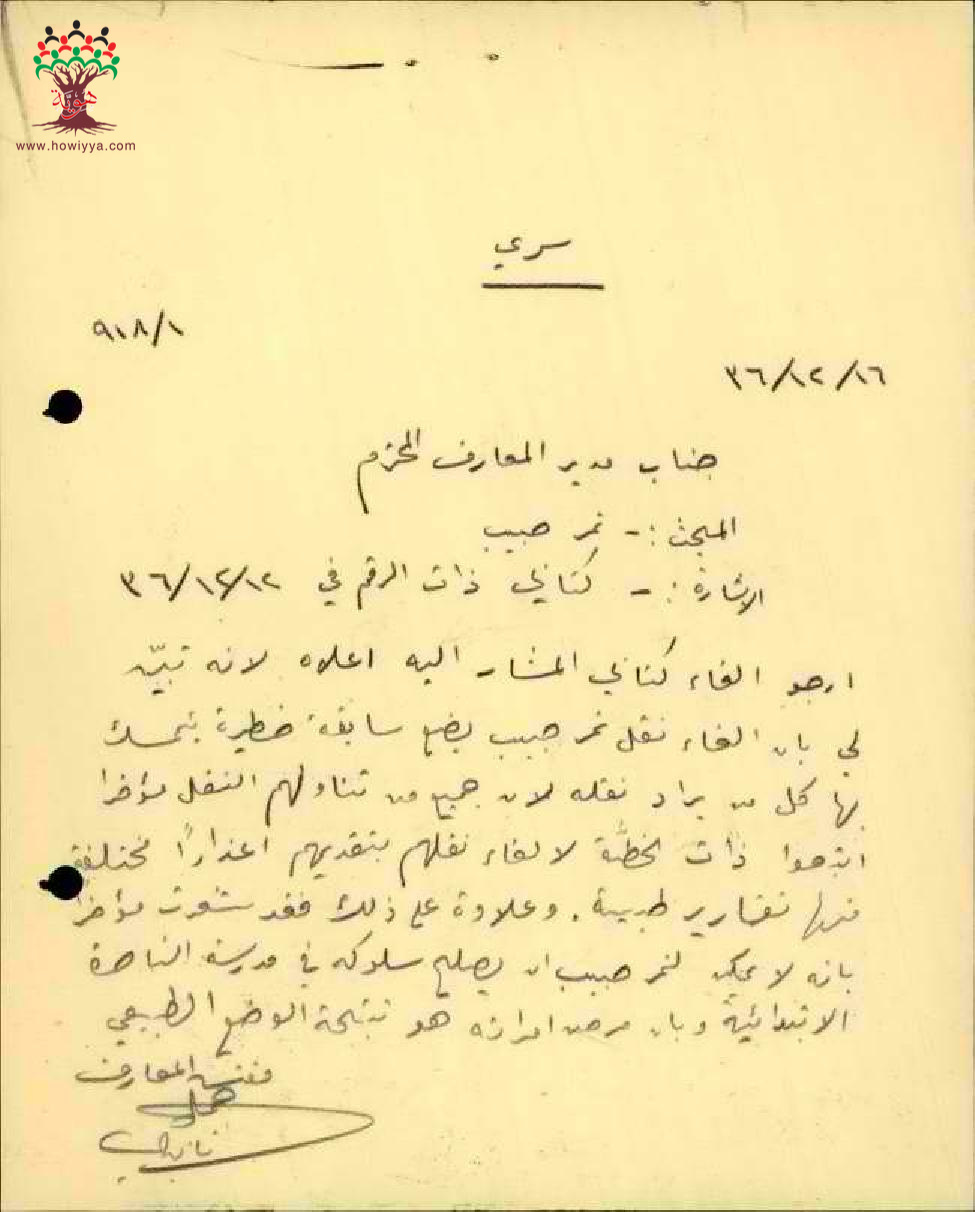 هوية
www.howiyya.com
سري
٩١٨/١
٣٦/١٢/١٦
جناب مدير المعارف المحترم
المبحث :- نمر حبيب
الاشارة :- كتابي ذات الرقم في ٣٦/١٢/١٢
ارجو الغاء كتابي المشار اليه اعلاه لانه تبيّن
لي بان الغاء نقل نمر حبيب يضع سابقة خطيرة يتمسك
بها كل من يراد نقله لان جميع من تناولهم النقل مؤخرا
اتبعوا ذات الخطّة لالغاء نقلهم بتقديمهم اعذارًا مختلفة
منها تقارير طبية. وعلاوة على ذلك فقد شعرت مؤخرا
بانه لا يمكن لنمر حبيب ان يصلح سلوكه في مدرسة الناصرة
الابتدائية وبان مرض امراته هو نتيجة الوضع الطبيعي
مفتش المعارف